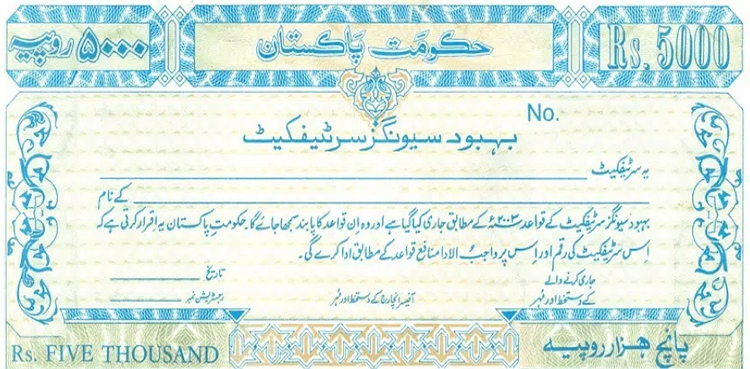 ۵۰۰۰ روپیہ
حکومت پاکستان
Rs. 5000
No.
بہبود سیونگز سرٹیفکیٹ
یہ سرٹیفکیٹ
کے نام
بہبود سیونگز سرٹیفکیٹ کے قواعد ۲۰۰۳ء کے مطابق جاری کیا گیا ہے اور وہ ان قواعد کا پابند سمجھا جائے گا۔ حکومت پاکستان یہ اقرار کرتی ہے کہ
اِس سرٹیفکیٹ کی رقم اور اس پر واجبُ الادا منافع قواعد کے مطابق ادا کرے گی۔
جاری کرنے والے تاریخ
کے دستخط اور مُہر آفیسر انچارج کے دستخط اور مُہر رجسٹریشن نمبر
Rs. FIVE THOUSAND
پانچ ہزار روپیہ